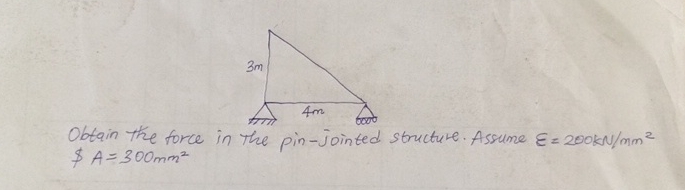 3m
4m
Obtain the force in the pin-jointed structure. Assume E = 200kN/mm²
$ A = 300mm²